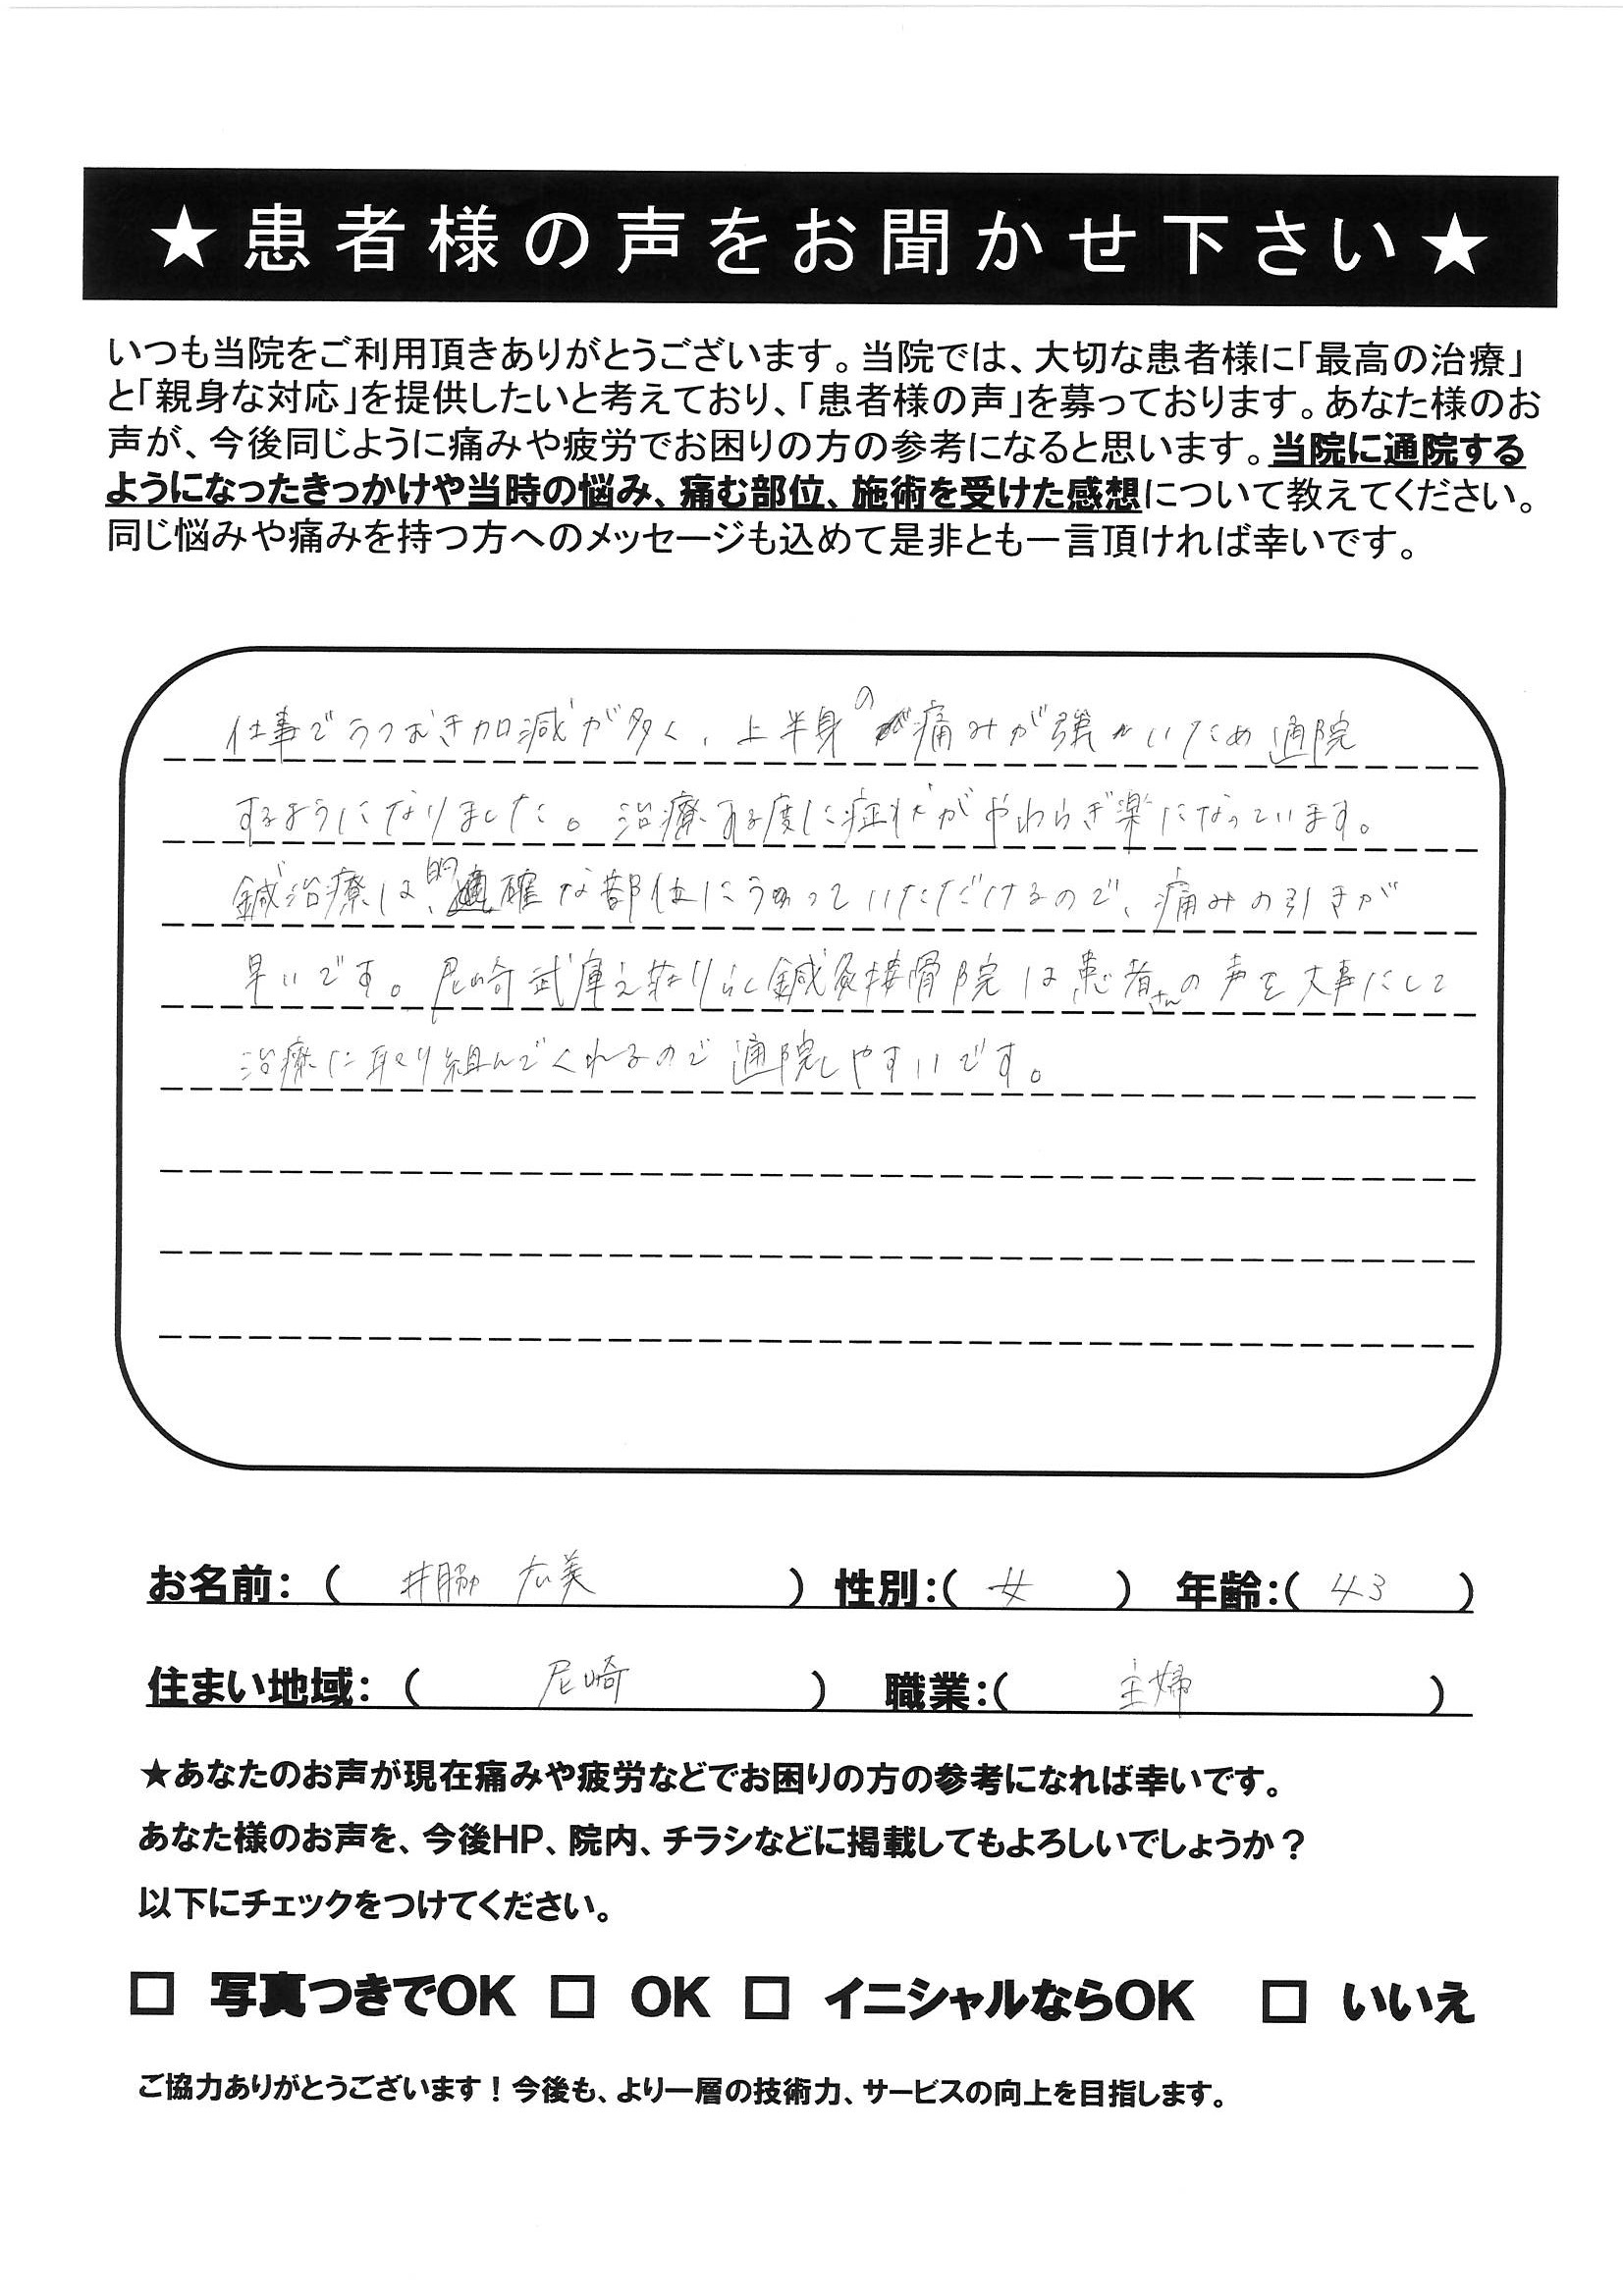 ★患者様の声をお聞かせ下さい★
いつも当院をご利用頂きありがとうございます。当院では、大切な患者様に「最高の治療」
と「親身な対応」を提供したいと考えており、「患者様の声」を募っております。あなた様のお
声が、今後同じように痛みや疲労でお困りの方の参考になると思います。当院に通院する
ようになったきっかけや当時の悩み、痛む部位、施術を受けた感想について教えてください。
同じ悩みや痛みを持つ方へのメッセージも込めて是非とも一言頂ければ幸いです。
仕事でうつむき加減が多く、上半身の痛みが強いため通院
するようになりました。治療する度に症状がやわらぎ楽になっています。
鍼治療は、的確な部位にうっていただけるので、痛みの引きが
早いです。尼崎武庫之荘りらく鍼灸接骨院は患者さんの声を大事にして
治療に取り組んでくれるので通院しやすいです。
お名前:( 井脇 広美 ) 性別:( 女 ) 年齢:( 43 )
住まい地域:( 尼崎 ) 職業:( 主婦 )
★あなたのお声が現在痛みや疲労などでお困りの方の参考になれば幸いです。
あなた様のお声を、今後HP、院内、チラシなどに掲載してもよろしいでしょうか?
以下にチェックをつけてください。
□ 写真つきでOK □ OK □ イニシャルならOK □ いいえ
ご協力ありがとうございます!今後も、より一層の技術力、サービスの向上を目指します。